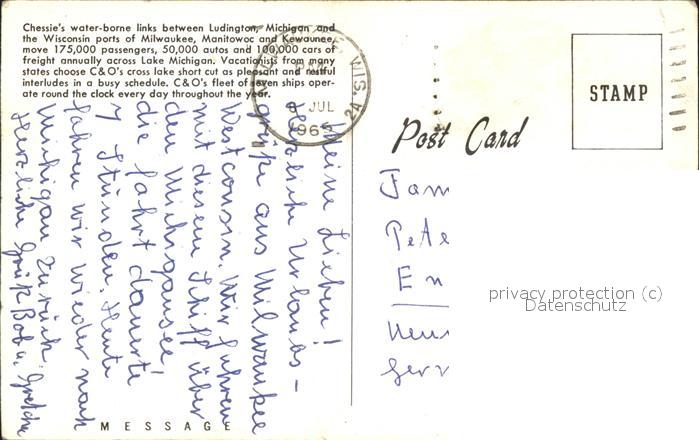 Chessie's water-borne links between Ludington, Michigan and
the Wisconsin ports of Milwaukee, Manitowoc and Kewaunee,
move 175,000 passengers, 50,000 autos and 100,000 cars of
freight annually across Lake Michigan. Vacationists from many
states choose C&O's cross lake short cut as pleasant and restful
interludes in a busy schedule. C&O's fleet of seven ships oper-
ate round the clock every day throughout the year.
WIS.
JUL
196
2A
STAMP
Post Card
Meine Lieben!
Herzliche Urlaubs-
grüße aus Milwaukee
Wisconsin. Wir fuhren
mit diesem Schiff über
den Michigansee,
die Fahrt dauerte
7 Stunden. Heute
fahren wir wieder nach
Michigan zurück.
Herzliche Grüße Bob u. Gretchen
Fam
Pete
En
Neu
Ger
privacy protection (c)
Datenschutz
MESSAGE